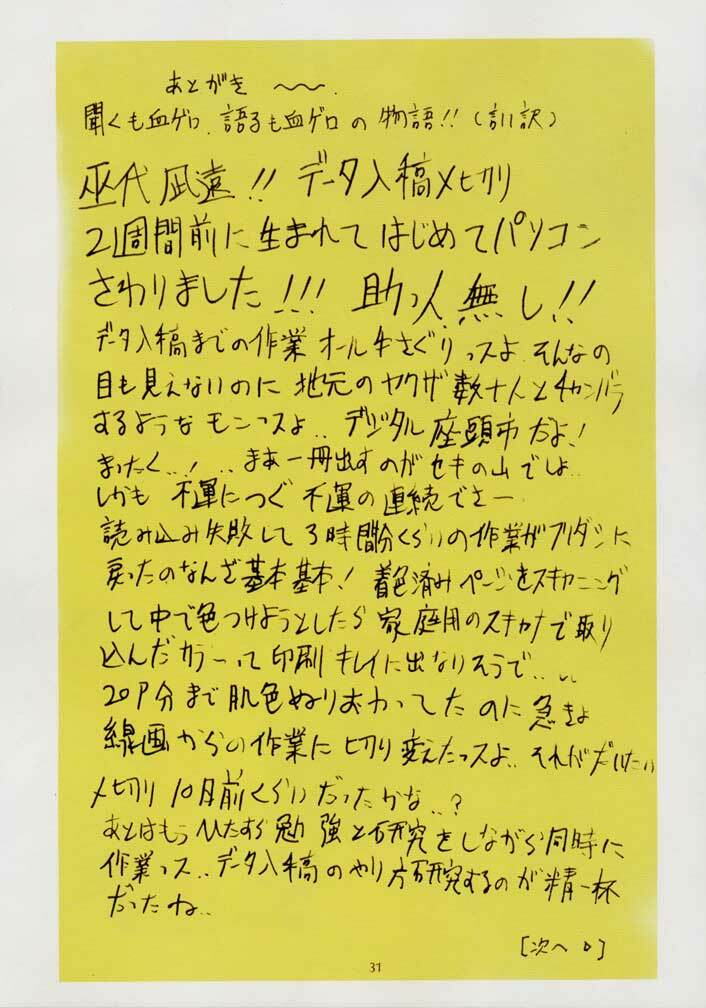 あとがき 〜〜.
聞くも血ゲロ、語るも血ゲロの物語!!(言い訳)
巫代凪遠!! データ入稿〆切り
2週間前に生まれてはじめてパソコン
さわりました!!! 助っ人無し!!
データ入稿までの作業オール手さぐりっスよ、そんなの
目も見えないのに地元のヤクザ数十人とチャンバラ
するようなモンっスよ.. デジタル座頭市だよ!
まったく..! ..まあ一冊出すのがセキの山でしょ..
しかも不運につぐ不運の連続でさー
読み込み失敗して3時間分くらいの作業がフリダシに
戻ったのなんざ基本基本! 着色済みページをスキャニング
して中で色つけようとしたら家庭用のスキャナで取り
込んだカラーって印刷キレイに出なりそうで...
20P分まで肌色ぬりおわってたのに急きょ
線画からの作業に切り変えたっスよ.. それがだいたい
〆切り10日前くらいだったかな..?
あとはもうひたすら勉強と研究をしながら同時に
作業っス.. データ入稿のやり方研究するのが精一杯
だったね..
[次へ▷]
31